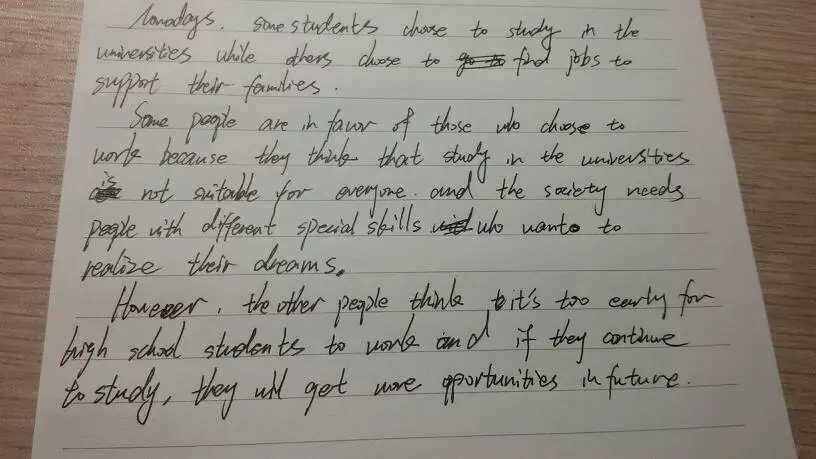 Nowadays, some students choose to study in the
universities while others choose to find jobs to
support their families.
Some people are in favor of those who choose to
work because they think that study in the universities
is not suitable for everyone. and the society needs
people with different special skills who wants to
realize their dreams.
However, the other people think it's too early for
high school students to work and if they continue
to study, they will get more opportunities in future.